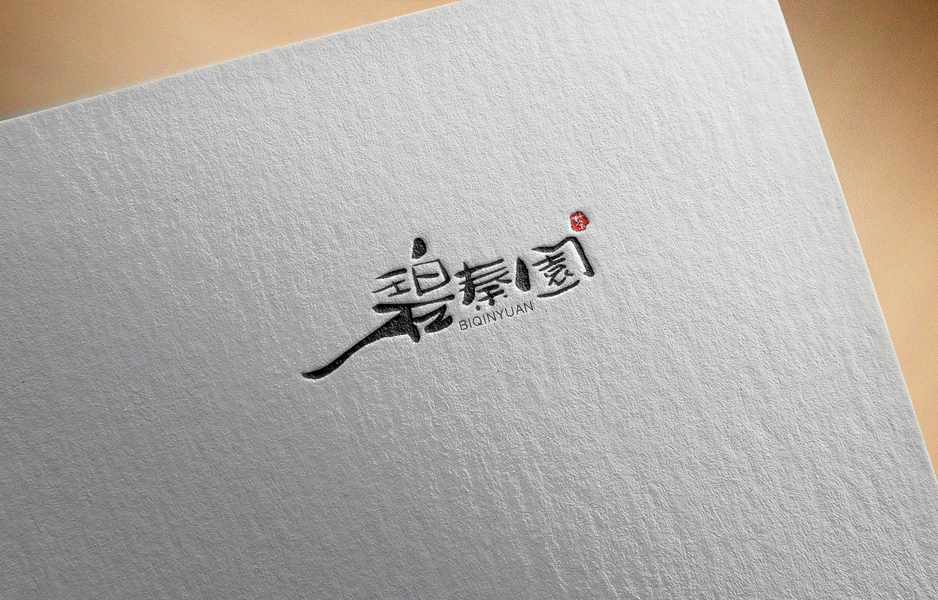 碧秦園
BIQINYUAN